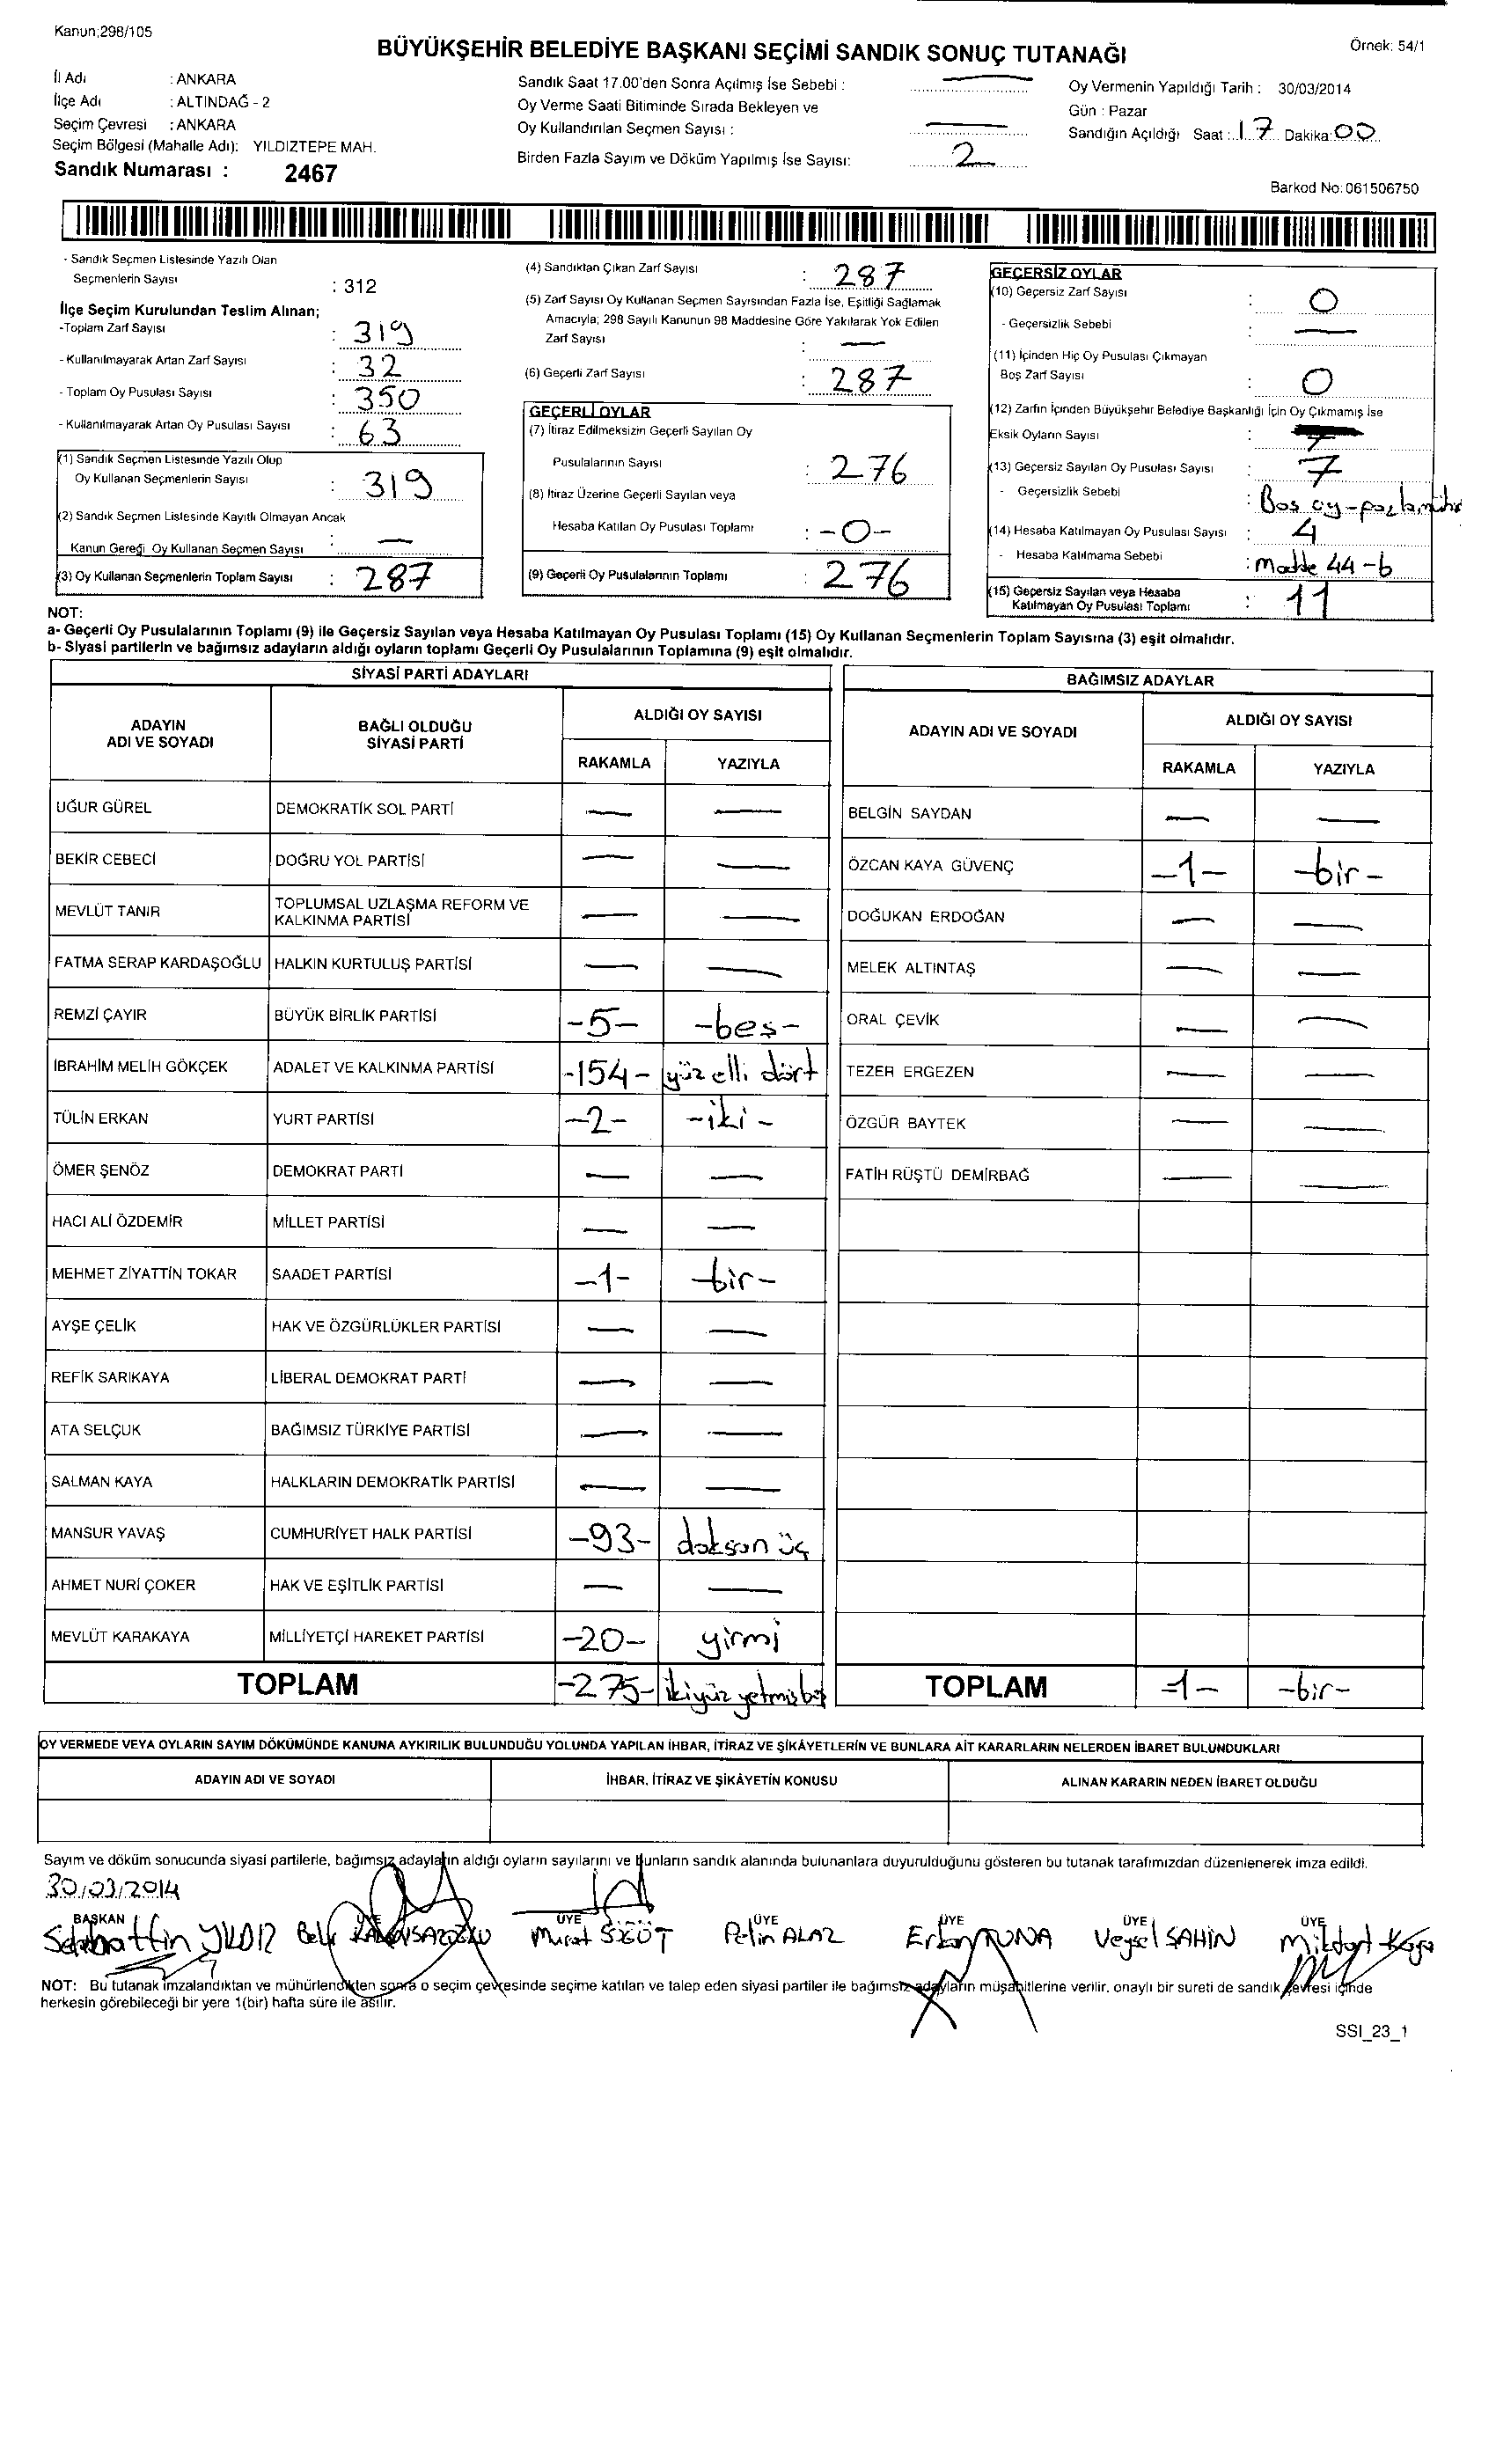 Kanun;298/105
BÜYÜKŞEHİR BELEDİYE BAŞKANI SEÇİMİ SANDIK SONUÇ TUTANAĞI
Örnek: 54/1
İl Adı : ANKARA
İlçe Adı : ALTINDAĞ - 2
Seçim Çevresi : ANKARA
Seçim Bölgesi (Mahalle Adı): YILDIZTEPE MAH.
Sandık Numarası : 2467
Sandık Saat 17.00'den Sonra Açılmış İse Sebebi : —
Oy Verme Saati Bitiminde Sırada Bekleyen ve
Oy Kullandırılan Seçmen Sayısı : —
Birden Fazla Sayım ve Döküm Yapılmış İse Sayısı: 2
Oy Vermenin Yapıldığı Tarih : 30/03/2014
Gün : Pazar
Sandığın Açıldığı Saat : 17 Dakika: 00
Barkod No: 061506750
- Sandık Seçmen Listesinde Yazılı Olan
Seçmenlerin Sayısı : 312
İlçe Seçim Kurulundan Teslim Alınan;
-Toplam Zarf Sayısı : 319
- Kullanılmayarak Artan Zarf Sayısı : 32
- Toplam Oy Pusulası Sayısı : 350
- Kullanılmayarak Artan Oy Pusulası Sayısı : 63
(1) Sandık Seçmen Listesinde Yazılı Olup
Oy Kullanan Seçmenlerin Sayısı : 319
(2) Sandık Seçmen Listesinde Kayıtlı Olmayan Ancak
Kanun Gereği Oy Kullanan Seçmen Sayısı : —
(3) Oy Kullanan Seçmenlerin Toplam Sayısı : 287
(4) Sandıktan Çıkan Zarf Sayısı : 287
(5) Zarf Sayısı Oy Kullanan Seçmen Sayısından Fazla İse, Eşitliği Sağlamak
Amacıyla; 298 Sayılı Kanunun 98 Maddesine Göre Yakılarak Yok Edilen
Zarf Sayısı : —
(6) Geçerli Zarf Sayısı : 287
GEÇERLİ OYLAR
(7) İtiraz Edilmeksizin Geçerli Sayılan Oy
Pusulalarının Sayısı : 276
(8) İtiraz Üzerine Geçerli Sayılan veya
Hesaba Katılan Oy Pusulası Toplamı : -0-
(9) Geçerli Oy Pusulalarının Toplamı : 276
GEÇERSİZ OYLAR
(10) Geçersiz Zarf Sayısı : 0
- Geçersizlik Sebebi : —
(11) İçinden Hiç Oy Pusulası Çıkmayan
Boş Zarf Sayısı : 0
(12) Zarfın İçinden Büyükşehir Belediye Başkanlığı İçin Oy Çıkmamış İse
Eksik Oyların Sayısı :
(13) Geçersiz Sayılan Oy Pusulası Sayısı : 7
- Geçersizlik Sebebi : Bos oy-
(14) Hesaba Katılmayan Oy Pusulası Sayısı : 4
- Hesaba Katılmama Sebebi : Madde 44-b
(15) Geçersiz Sayılan veya Hesaba
Katılmayan Oy Pusulası Toplamı : 11
NOT:
a- Geçerli Oy Pusulalarının Toplamı (9) ile Geçersiz Sayılan veya Hesaba Katılmayan Oy Pusulası Toplamı (15) Oy Kullanan Seçmenlerin Toplam Sayısına (3) eşit olmalıdır.
b- Siyasi partilerin ve bağımsız adayların aldığı oyların toplamı Geçerli Oy Pusulalarının Toplamına (9) eşit olmalıdır.
SİYASİ PARTİ ADAYLARI
ADAYIN ADI VE SOYADI BAĞLI OLDUĞU SİYASİ PARTİ ALDIĞI OY SAYISI
RAKAMLA YAZIYLA
UĞUR GÜREL DEMOKRATİK SOL PARTİ — —
BEKİR CEBECİ DOĞRU YOL PARTİSİ — —
MEVLÜT TANIR TOPLUMSAL UZLAŞMA REFORM VE KALKINMA PARTİSİ — —
FATMA SERAP KARDAŞOĞLU HALKIN KURTULUŞ PARTİSİ — —
REMZİ ÇAYIR BÜYÜK BİRLİK PARTİSİ -5- -beş-
İBRAHİM MELİH GÖKÇEK ADALET VE KALKINMA PARTİSİ -154- yüz elli dört
TÜLİN ERKAN YURT PARTİSİ -2- -iki-
ÖMER ŞENÖZ DEMOKRAT PARTİ — —
HACI ALİ ÖZDEMİR MİLLET PARTİSİ — —
MEHMET ZİYATTİN TOKAR SAADET PARTİSİ -1- -bir-
AYŞE ÇELİK HAK VE ÖZGÜRLÜKLER PARTİSİ — —
REFİK SARIKAYA LİBERAL DEMOKRAT PARTİ — —
ATA SELÇUK BAĞIMSIZ TÜRKİYE PARTİSİ — —
SALMAN KAYA HALKLARIN DEMOKRATİK PARTİSİ — —
MANSUR YAVAŞ CUMHURİYET HALK PARTİSİ -93- doksan üç
AHMET NURİ ÇOKER HAK VE EŞİTLİK PARTİSİ — —
MEVLÜT KARAKAYA MİLLİYETÇİ HAREKET PARTİSİ -20- yirmi
TOPLAM -275- ikiyüz yetmişbeş
BAĞIMSIZ ADAYLAR
ADAYIN ADI VE SOYADI ALDIĞI OY SAYISI
RAKAMLA YAZIYLA
BELGİN SAYDAN — —
ÖZCAN KAYA GÜVENÇ -1- -bir-
DOĞUKAN ERDOĞAN — —
MELEK ALTINTAŞ — —
ORAL ÇEVİK — —
TEZER ERGEZEN — —
ÖZGÜR BAYTEK — —
FATİH RÜŞTÜ DEMİRBAĞ — —
TOPLAM -1- -bir-
OY VERMEDE VEYA OYLARIN SAYIM DÖKÜMÜNDE KANUNA AYKIRILIK BULUNDUĞU YOLUNDA YAPILAN İHBAR, İTİRAZ VE ŞİKÂYETLERİN VE BUNLARA AİT KARARLARIN NELERDEN İBARET BULUNDUKLARI
ADAYIN ADI VE SOYADI İHBAR, İTİRAZ VE ŞİKÂYETİN KONUSU ALINAN KARARIN NEDEN İBARET OLDUĞU
Sayım ve döküm sonucunda siyasi partilerle, bağımsız adayların aldığı oyların sayılarını ve bunların sandık alanında bulunanlara duyurulduğunu gösteren bu tutanak tarafımızdan düzenlenerek imza edildi.
30/03/2014
BAŞKAN ÜYE ÜYE ÜYE ÜYE ÜYE ÜYE
Sebahattin YILDIZ Murat SÖĞÜT Pelin ALAZ Erkan TUNA Veysel ŞAHİN
NOT: Bu tutanak imzalandıktan ve mühürlendikten sonra o seçim çevresinde seçime katılan ve talep eden siyasi partiler ile bağımsız adayların müşahitlerine verilir, onaylı bir sureti de sandık çevresi içinde
herkesin görebileceği bir yere 1(bir) hafta süre ile asılır.
SSI_23_1